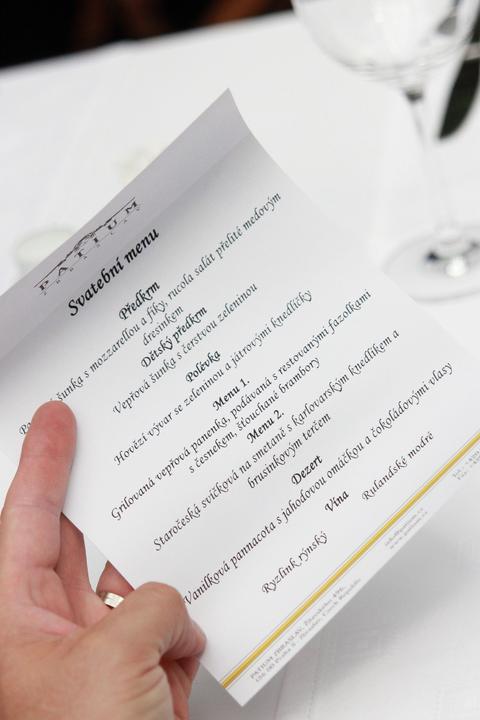 PATIUM
Svatební menu
Předkrm
šunka s mozzarellou a fíky, rucola salát přelité medovým
dresinkem
Dětský předkrm
Vepřová šunka s čerstvou zeleninou
Polévka
Hovězí vývar se zeleninou a játrovými knedlíčky
Menu 1.
Grilovaná vepřová panenka, podávaná s restovanými fazolkami
s česnekem, šťouchané brambory
Menu 2.
Staročeská svíčková na smetaně s karlovarským knedlíkem a
brusinkovým terčem
Dezert
Vanilková pannacota s jahodovou omáčkou a čokoládovými vlasy
Vína
Ryzlink rýnský Rulandské modré
PATIUM ZBRASLAV, Žitavského 496,
156 00 Praha 5 - Zbraslav, Czech Republic